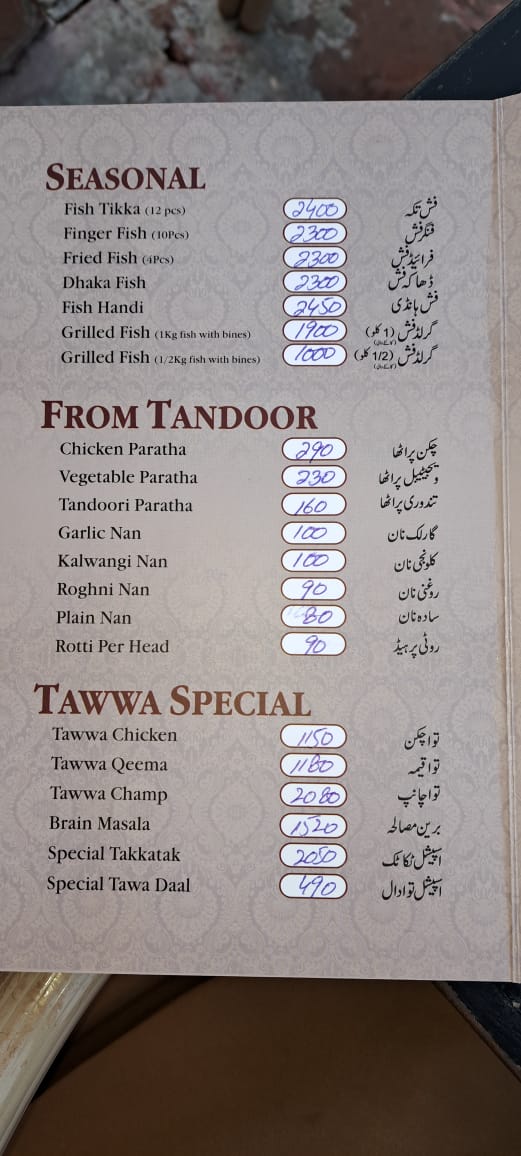 SEASONAL
Fish Tikka (12 pcs) 2400 فش تکہ
Finger Fish (10Pcs) 2300 فنگر فش
Fried Fish (4Pcs) 2300 فرائیڈ فش
Dhaka Fish 2300 ڈھاکہ فش
Fish Handi 2450 فش ہانڈی
Grilled Fish (1Kg fish with bines) 1900 گرلڈ فش (1 کلو)
Grilled Fish (1/2Kg fish with bines) 1000 گرلڈ فش (1/2 کلو)
FROM TANDOOR
Chicken Paratha 290 چکن پراٹھا
Vegetable Paratha 230 ویجیٹیبل پراٹھا
Tandoori Paratha 160 تندوری پراٹھا
Garlic Nan 100 گارلک نان
Kalwangi Nan 100 کلونجی نان
Roghni Nan 90 روغنی نان
Plain Nan 80 سادہ نان
Rotti Per Head 90 روٹی پر ہیڈ
TAWWA SPECIAL
Tawwa Chicken 1150 توا چکن
Tawwa Qeema 1180 توا قیمہ
Tawwa Champ 2080 توا چانپ
Brain Masala 1520 برین مصالحہ
Special Takkatak 2050 اسپیشل ٹکا ٹک
Special Tawa Daal 490 اسپیشل توا دال